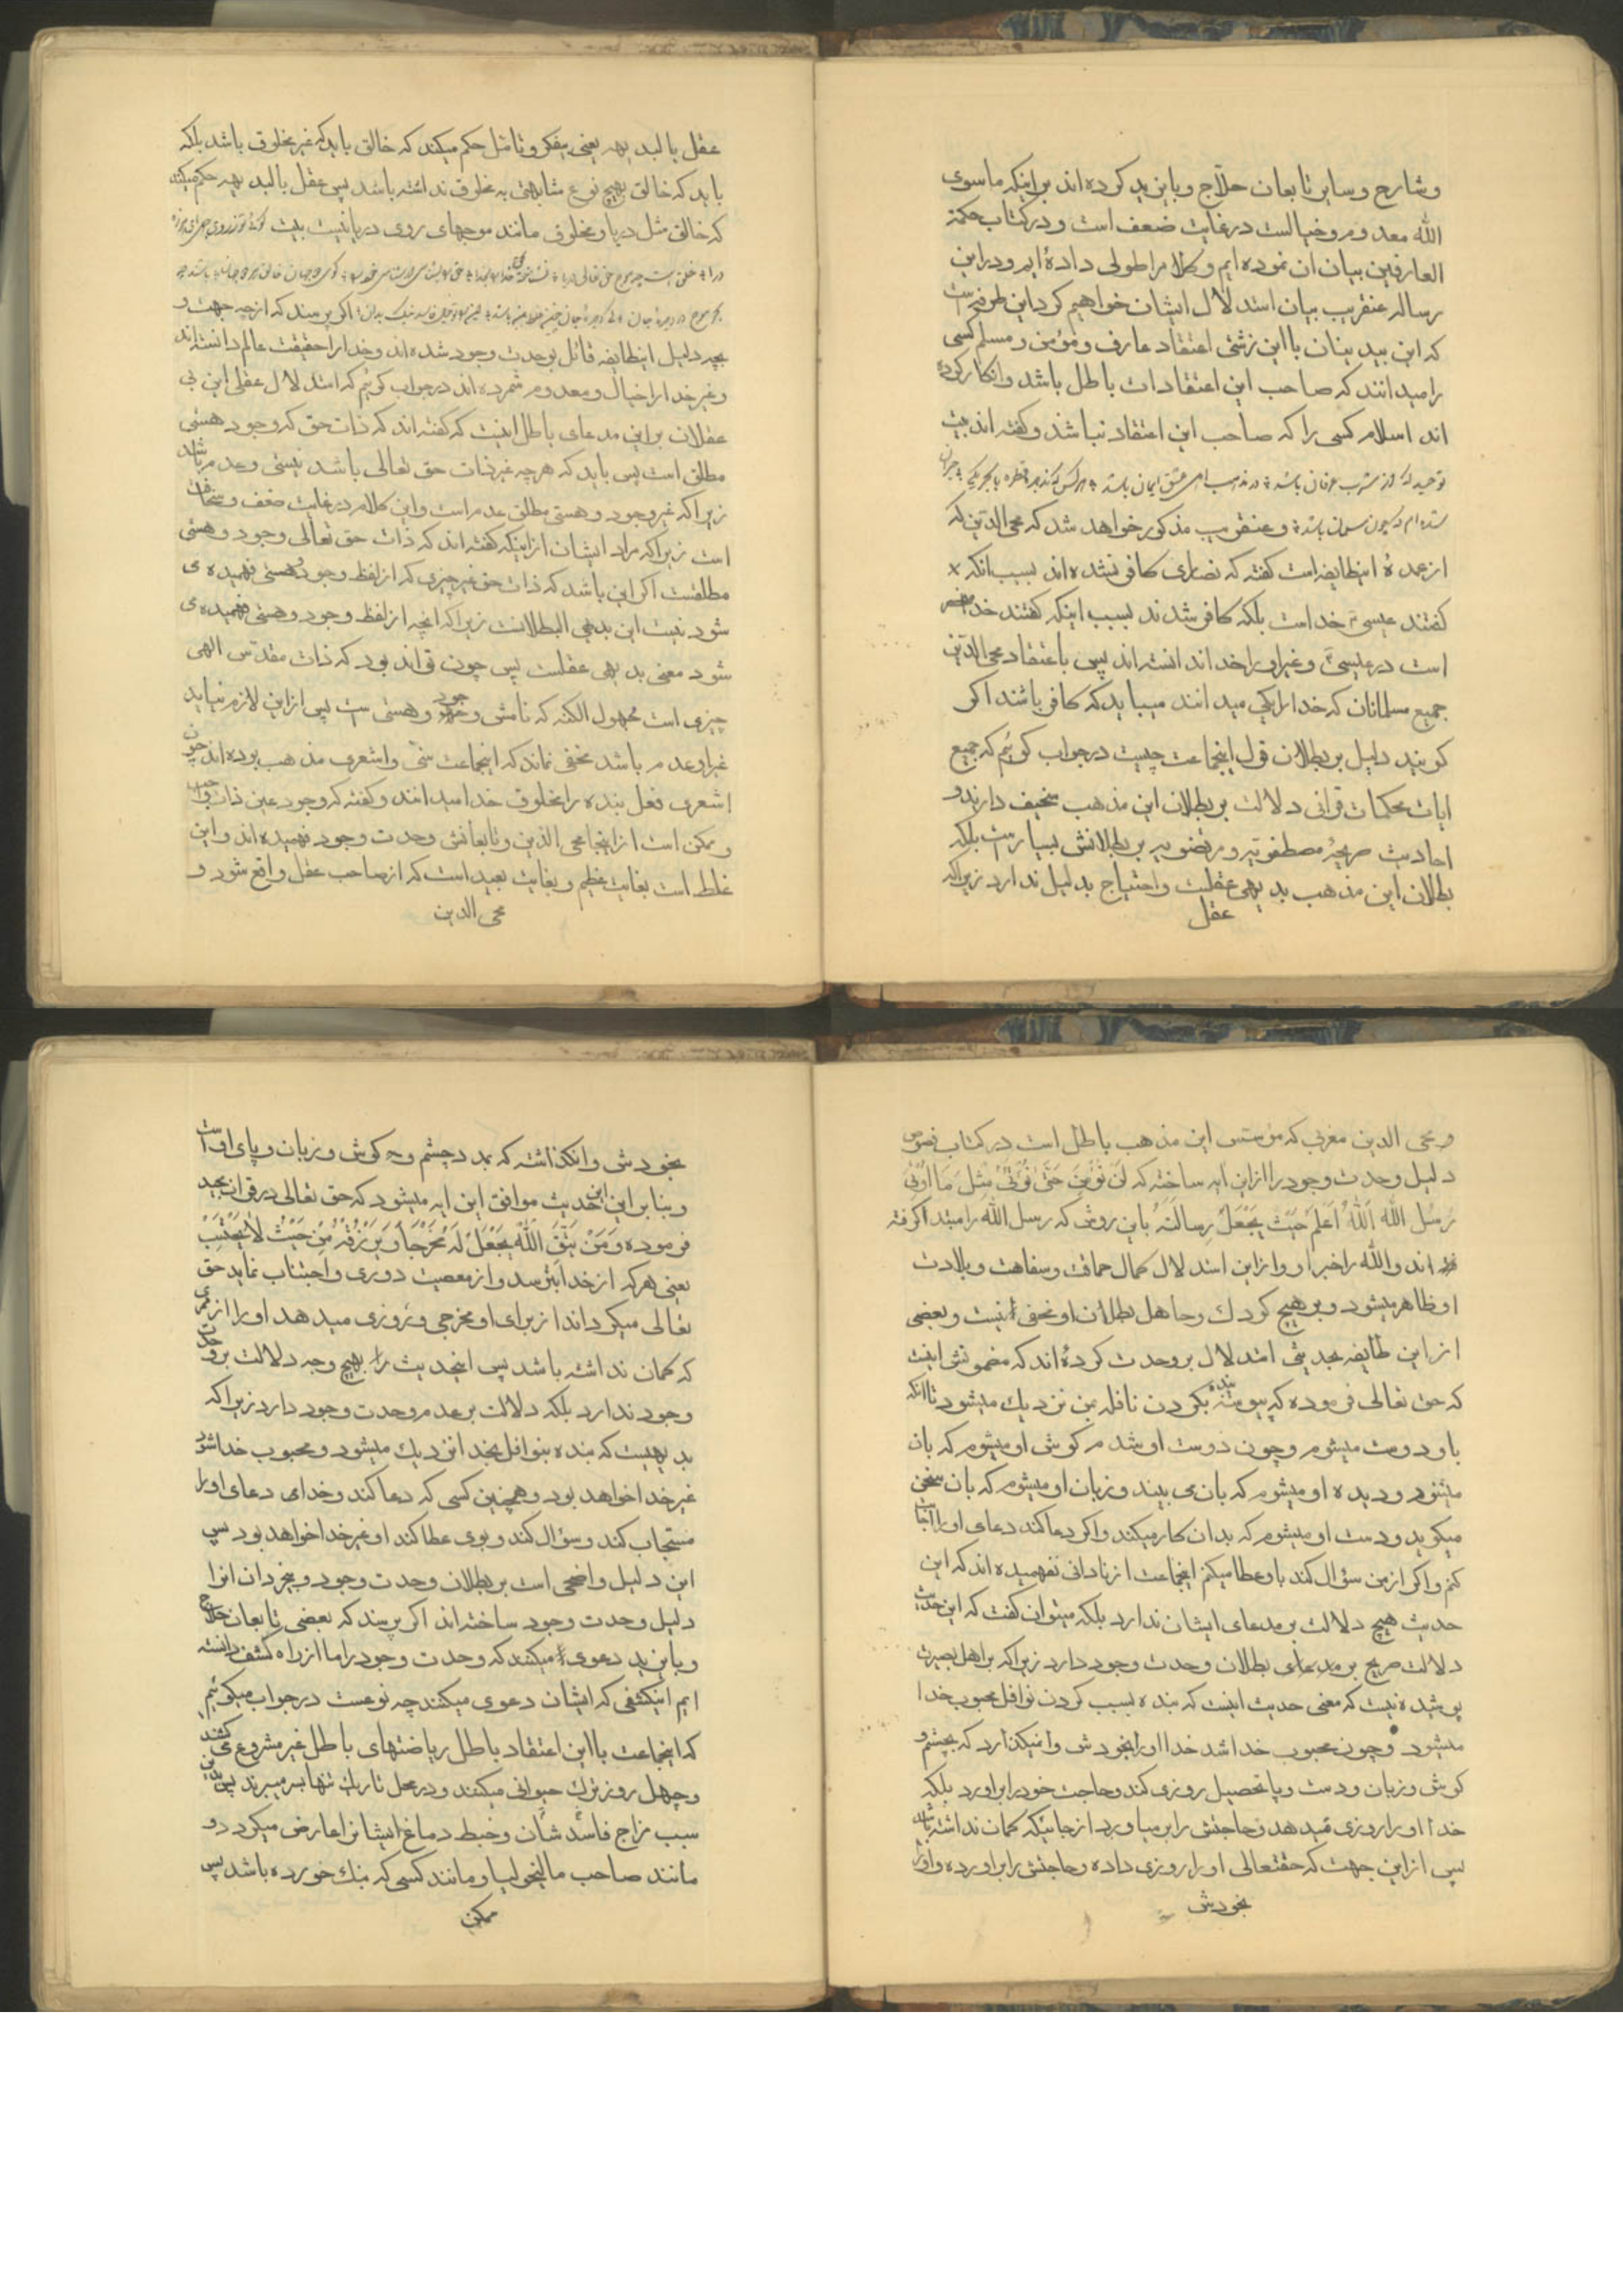 وشارح وسایر تابعان حلّاج وبایزید کرده اند براینکه ماسوی
الله معدوم وخیالست درغایت ضعف است ودرکتاب حکمة
العارفین بیان ان نموده ایم وکلام را طولی داده ایم ودراین
رساله عنقریب بیان استدلال ایشان خواهیم کرد این طرفه است
که این بیدینان بااین زشتی اعتقاد عارف ومؤمن ومسلم کسی
رامیدانند که صاحب این اعتقادات باطل باشد وانکار کرده
اند اسلام کسی را که صاحب این اعتقاد نباشد وگفته اند بیت
در مذهب اهل عشق ایمان باشد
وعنقریب مذکور خواهد شد که محی الدین که
از عمدهٔ اینطایفه است گفته که نصاری کافر نشده اند بسبب انکه
گفتند عیسی خداست بلکه کافر شدند بسبب اینکه گفتند خدا منحصر
است درعیسی وغیر او را خدا ندانسته اند پس باعتقاد محی الدین
جمیع مسلمانان که خدا را یکی میدانند میباید که کافر باشند اکر
کویند دلیل بر بطلان قول اینجماعت چیست درجواب کوئیم که جمیع
ایات محکمات قرانی دلالت بر بطلان این مذهب سخیف دارند و
احادیث صریحهٔ مصطفویه ومرتضویه بر بطلانش بسیارست بلکه
بطلان این مذهب بدیهی عقلست واحتیاج بدلیل ندارد زیراکه
عقل
عقل بالبدیهه یعنی بیفکر وتامل حکم میکند که خالق باید که غیر مخلوق باشد بلکه
باید که خالق بهیچ نوع مشابهتی به مخلوق نداشته باشد پس عقل بالبدیهه حکم میکند
که خالق مثل دریا ومخلوق مانند موجهای روی دریا نیست بیت
اکر پرسند که ازچه جهت و
بچه دلیل اینطایفه قائل بوحدت وجود شده اند وخدا را حقیقت عالم دانسته اند
وغیر خدا را خیال ومعدوم شمرده اند درجواب کوئیم که استدلال عقلی این بی
عقلان براین مدعای باطل اینست که گفته اند که ذات حق که وجود وهستی
مطلق است پس باید که هرچه غیر ذات حق تعالی باشد نیستی وعدم باشد
زیراکه غیر وجود وهستی مطلق عدم است واین کلام درغایت ضعف وسخافت
است زیراکه مراد ایشان ازاینکه گفته اند که ذات حق تعالی وجود وهستی
مطلقست اکر این باشد که ذات حق غیر چیزی که ازلفظ وجود وهستی فهمیده می
شود نیست این بدیهی البطلانست زیراکه انچه ازلفظ وجود وهستی فهمیده می
شود معنی بدیهی عقلست پس چون تواند بود که ذات مقدّس الهی
چیزی است مجهول الکنه که نامش وجود وهستی ست پس ازاین لازم نیاید
غیر او عدم باشد مخفی نماند که اینجماعت سنّی واشعری مذهب بوده اند چون
اشعری فعل بنده را مخلوق خدا میدانند وگفته که وجود عین ذات واجب
وممکن است ازاینجا محی الدین وتابعانش وحدت وجود فهمیده اند واین
غلط است بغایت عظیم وبغایت بعید است که ازصاحب عقل واقع شود و
محی الدین
ومحی الدین مغربی که مؤسس این مذهب باطل است درکتاب فصوص
دلیل وحدت وجود را ازاین ایه ساخته که لَن نُؤمِنَ حَتّی نُؤتی مِثلَ مَا اُوتِیَ
رُسُلُ اللهِ اَللهُ اَعلَمُ حَیثُ یَجعَلُ رِسالَتَهُ باین روش که رسل الله را مبتدا کرفته
اند والله را خبر او وازاین استدلال کمال حماقت وسفاهت وبلادت
او ظاهر میشود وبر هیچ کودک وجاهل بطلان او مخفی نیست وبعضی
ازاین طایفه بحدیثی استدلال بروحدت کرده اند که مضمونش اینست
که حق تعالی فرموده که پیوسته بنده بکردن نافله بمن نزدیک میشود تا انکه
با او دوست میشوم وچون دوست او شدم کوش او میشوم که بان
میشنود ودیده او میشوم که بان می بیند وزبان او میشوم که بان سخن
میکوید ودست او میشوم که بدان کار میکند واکر دعا کند دعای او را اجابت
کنم واکر ازمن سؤال کند باو عطا میکنم اینجماعت از نادانی نفهمیده اند که این
حدیث هیچ دلالت بر مدعای ایشان ندارد بلکه میتوان گفت که این حدیث
دلالت صریح بر مدعای بطلان وحدت وجود دارد زیراکه بر اهل بصیرت
پوشیده نیست که معنی حدیث اینست که بنده بسبب کردن نوافل محبوب خدا
میشود وچون محبوب خدا شد خدا او را بخودش وانمیکذارد که بچشم و
کوش وزبان ودست وپا تحصیل روزی کند وحاجت خود را براورد بلکه
خدا او را روزی میدهد وحاجتش را برمیاورد ازجائیکه کمان نداشته باشد
پس ازاین جهت که حقتعالی او را روزی داده وحاجتش را براورده واو را
بخودش
بخودش وانکذاشته که بمدد چشم وکوش وزبان وپای او است
وبنابر این این حدیث موافق این ایه میشود که حق تعالی درقران مجید
فرموده وَمَنْ یَتَّقِ اللهَ یَجْعَلْ لَهُ مَخْرَجاً وَیَرْزُقْهُ مِنْ حَیْثُ لا یَحْتَسِبْ
یعنی هرکه ازخدا بترسد وازمعصیت دوری واجتناب نماید حق
تعالی میکرداند ازبرای او مخرجی وروزی میدهد او را از ممری
که کمان نداشته باشد پس اینحدیث را بهیچ وجه دلالت بروحدت
وجود ندارد بلکه دلالت برعدم وحدت وجود دارد زیراکه
بدیهیست که بنده بنوافل بخدا نزدیک میشود ومحبوب خدا شود
غیر خدا خواهد بود وهمچنین کسی که دعا کند وخدای دعای او را
مستجاب کند وسؤال کند وبوی عطا کند او غیر خدا خواهد بود پس
این دلیل واضحی است بر بطلان وحدت وجود وبیخردان انرا
دلیل وحدت وجود ساخته اند اکر پرسند که بعضی تابعان حلاج
وبایزید دعوی میکنند که وحدت وجود را ما ازراه کشف دانسته
ایم اینکشفی که ایشان دعوی میکنند چه نوعست درجواب میکوئیم
که اینجماعت بااین اعتقاد باطل ریاضتهای باطل غیر مشروع می کشند
وچهل روز ترک حیوانی میکنند ودرمحل تاریک تنها بسر میبرند پس بدین
سبب مزاج فاسد شان وخبط دماغ ایشانرا عارض میکردد و
مانند صاحب مالیخولیا ومانند کسی که بنک خورده باشد پس
ممکن